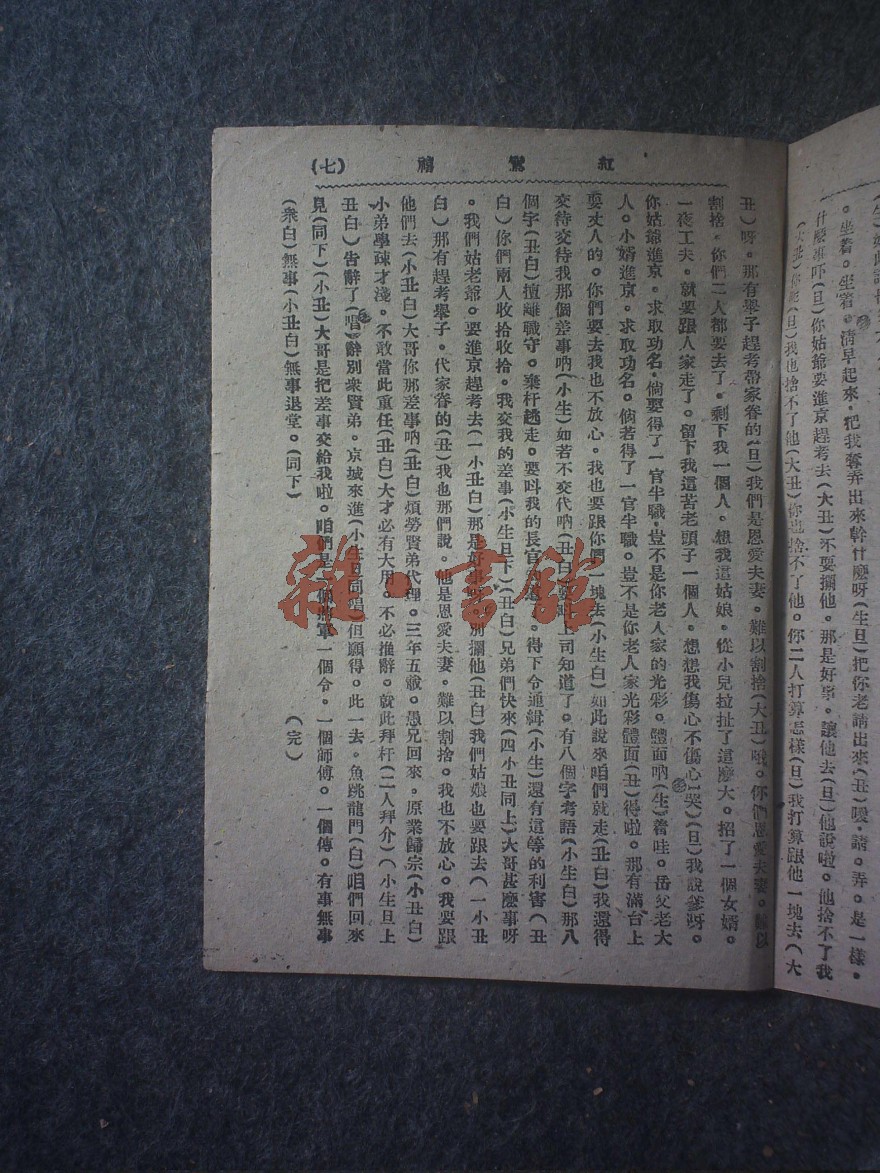 (生)
。坐着。坐着。清早起來。把我奪弄出來幹什麽呀(生旦)把你老請出來(丑)噯。請。弄。是一樣。
什麽誰吓(旦)你姑爺要進京趕考去(大丑)不要攔他。那是好事。讓他去(旦)他說啦。他捨不了我
(大丑)你呢(旦)我也捨不了他(大丑)你也捨不了他。你二人打算怎樣(旦)我打算跟他一塊去(大
紅鸞禧 (七)
丑)呀。那有舉子趕考帶家眷的(旦)我們是恩愛夫妻。難以割捨(大丑)哦。你們恩愛夫妻。難以
割捨。你們二人都要去了。剩下我一個人。想我這姑娘。從小兒拉扯了這麽大。招了一個女婿。
一夜工夫。就要跟人家走了。留下我這苦老頭子一個人。想想我傷心不傷心(哭)(旦)我說爹呀。
你姑爺進京。求取功名。倘要得了一官半職。豈不是你老人家的光彩。體面吶(生)着哇。岳父老大
人。小婿進京。求取功名。倘若得了一官半職。豈不是你老人家光彩體面(丑)得啦。那有滿台上
耍丈人的。你們要去我也不放心。我也要跟你們一塊去(小生白)如此說來咱們就走(丑白)我還得
交待交待我那個差事吶(小生)如若不交代吶(丑白)要叫上司知道了。有八個字考語(小生白)那八
個字(丑白)擅離職守。棄杆逃走。要叫我的長官知道。得下令通緝(小生)還有這等的利害(丑
白)你們兩人收拾收拾。我交我的差事(小生旦下)(丑白)兄弟們快來(四小丑同上)大哥甚麽事呀
。我們姑老爺。要進京趕考去(一小丑白)那是好事呀。別攔他(丑白)我們姑娘也要跟去(一小丑
白)那有趕考舉子。代家眷的(丑)我也那們說。他是恩愛夫妻。難以割捨。我也不放心。我要跟
他們去(小丑白)大哥你那差事吶(丑白)煩勞賢弟代理。三年五載。愚兄回來。原業歸宗(小丑白)
小弟學疎才淺。不敢當此重任(丑白)大才必有大用。不必推辭。就此拜杆(二人拜介)(小生旦上
丑白)告辭了(唱)辭別衆賢弟。京城來進(小生旦同唱)但願得。此一去。魚跳龍門(白)咱們回來
見(同下)(小丑)大哥是把差事交給我啦。咱們是一個將軍一個令。一個師傅。一個傳。有事無事
(衆白)無事(小丑白)無事退堂。(同下)
(完)
雜·書館